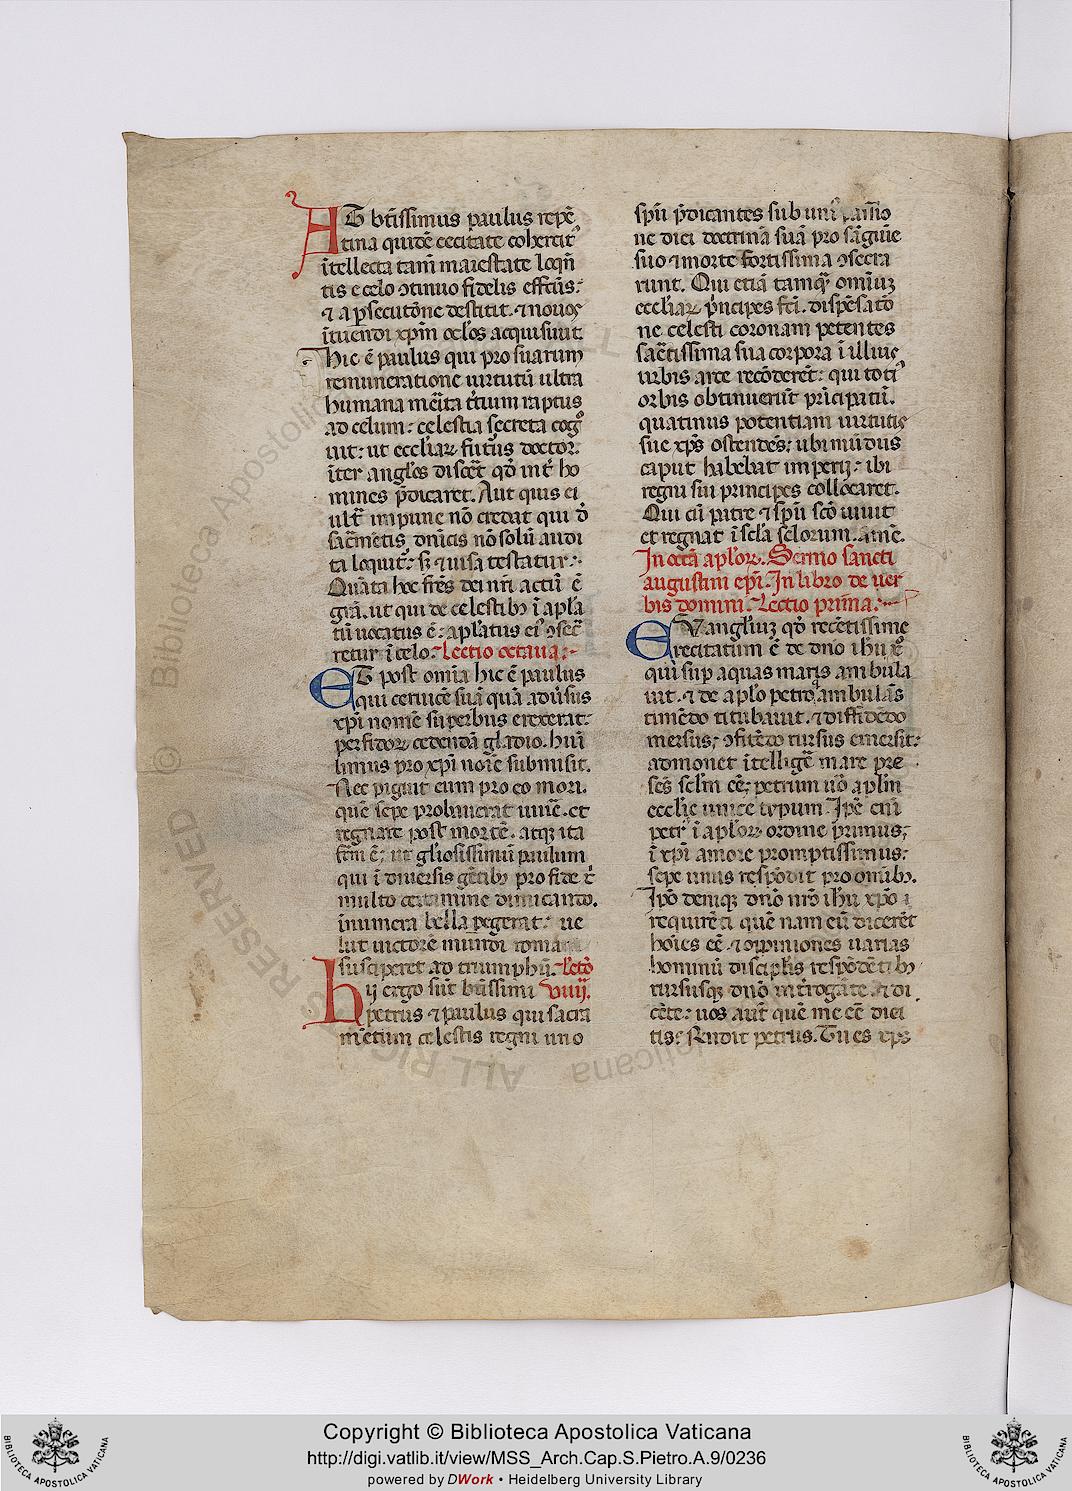 AT bt̄issimus paulus repē
tina quidē cecitate cohercit᷒
ītellecta tam̄ maiestate loqn̄
tis e celo ꝯtinuo fidelis effctūs:
⁊ a ꝑsecutōne destitit. ⁊ nouos
ītuendi xp̄m oc̄l̄os acquisiuit.
Hic ē paulus qui pro suarum
remuneratione uirtutū ultra
humana mēita t̄tium raptus
ad celum: celestia secreta cog
uit: ut eccl̄iaꝝ futūs doctor.
īter angl̄os discēt qd̄ int̄ ho
mines p̄dicaret. Aut quis ei
ult̄ impune nō credat qui d̄
sac̄mētis dn̄icis nō solū audi
ta loquit᷒: s; ⁊ uisa testatur:
Quāta hec fr̄es dei nr̄i actiū ē
grā. ut qui de celestibꝫ ī apl̄a
tū uocatus ē: apl̄atus ei᷒ ꝯsec̄
retur ī celo. Lectio octaua:
ET post om̄ia hic ē paulus
qui ceruicē suā quā adūsus
xp̄i nomē suꝑbus erexerat:
perfidoꝝ cedendā gladio. hui
limius pro xp̄i noīe submisit.
Nec piguit eum pro eo mori.
quē sepe probauerat uiuē. et
regnare post mortē. atqꝫ ita
fc̄m ē: ut gl̄iosissimū paulum
qui ī diuersis gētibꝫ pro fide
multo certamine dimicando.
inumera bella pegerat: ue
lut uictorē mundi roma
susciperet ad triumphū. Lectō
Hii ergo sūt bt̄issimi viiij.
petrus ⁊ paulus qui sacra
mētum celestis regni uno
spū p̄dicantes sub uni᷒ passio
ne diei doctrinā suā pro sāguīe
suo ⁊ morte fortissima ꝯsecra
runt. Qui etiā tamqͣ᷒ omniuꝫ
eccl̄iaꝝ p̄ncipes fc̄i. dispēsatō
ne celesti coronam petentes
sāctissima sua corpora ī illius
urbis arce recōderēt: qui toti᷒
orbis obtinuerūt prīcipatū.
quatinus potentiam uirtutis
sue xp̄s ostendēs: ubi mūdus
caput habebat imperij: ibi
regni sui principes collocaret.
Qui cū patre ⁊ spū scō uiuit
et regnat ī scl̄a sclorum. amē.
In octā apl̄oꝝ. Sermo sancti
augustini ep̄i. In libro de uer
bis domini. Lectio prima:
EVangl̄iuꝫ qd̄ recētissime
recitatum ē de dn̄o ih̄u xp̄o
qui suꝑ aquas maris ambula
uit. ⁊ de apl̄o petro ambulās
timēdo titubauit. ⁊ diffidēdo
mersus; ꝯfitēdo rursus emersit:
admonet ītelligē mare pre
sēs sclm̄ eē; petrum uō apl̄m
eccl̄ie unice typum. Ipē eni
petr᷒ ī apl̄oꝝ ordine primus;
ī xp̄i amore promptissimus;
sepe unus respōdit pro omībꝫ.
Ipō deniqꝫ dn̄o nr̄o ih̄u xp̄o
requirēti quē nam eū dicerēt
hoīes eē. ⁊ oppiniones uarias
hominū discipl̄is respōdētibꝫ
rursusqꝫ dn̄o int̄rogāte. ⁊ di
cēte: uos aut̄ quē me eē dici
tis: Rn̄dit petrus. Tu es xp̄s
Copyright © Biblioteca Apostolica Vaticana
http://digi.vatlib.it/view/MSS_Arch.Cap.S.Pietro.A.9/0236
powered by DWork • Heidelberg University Library